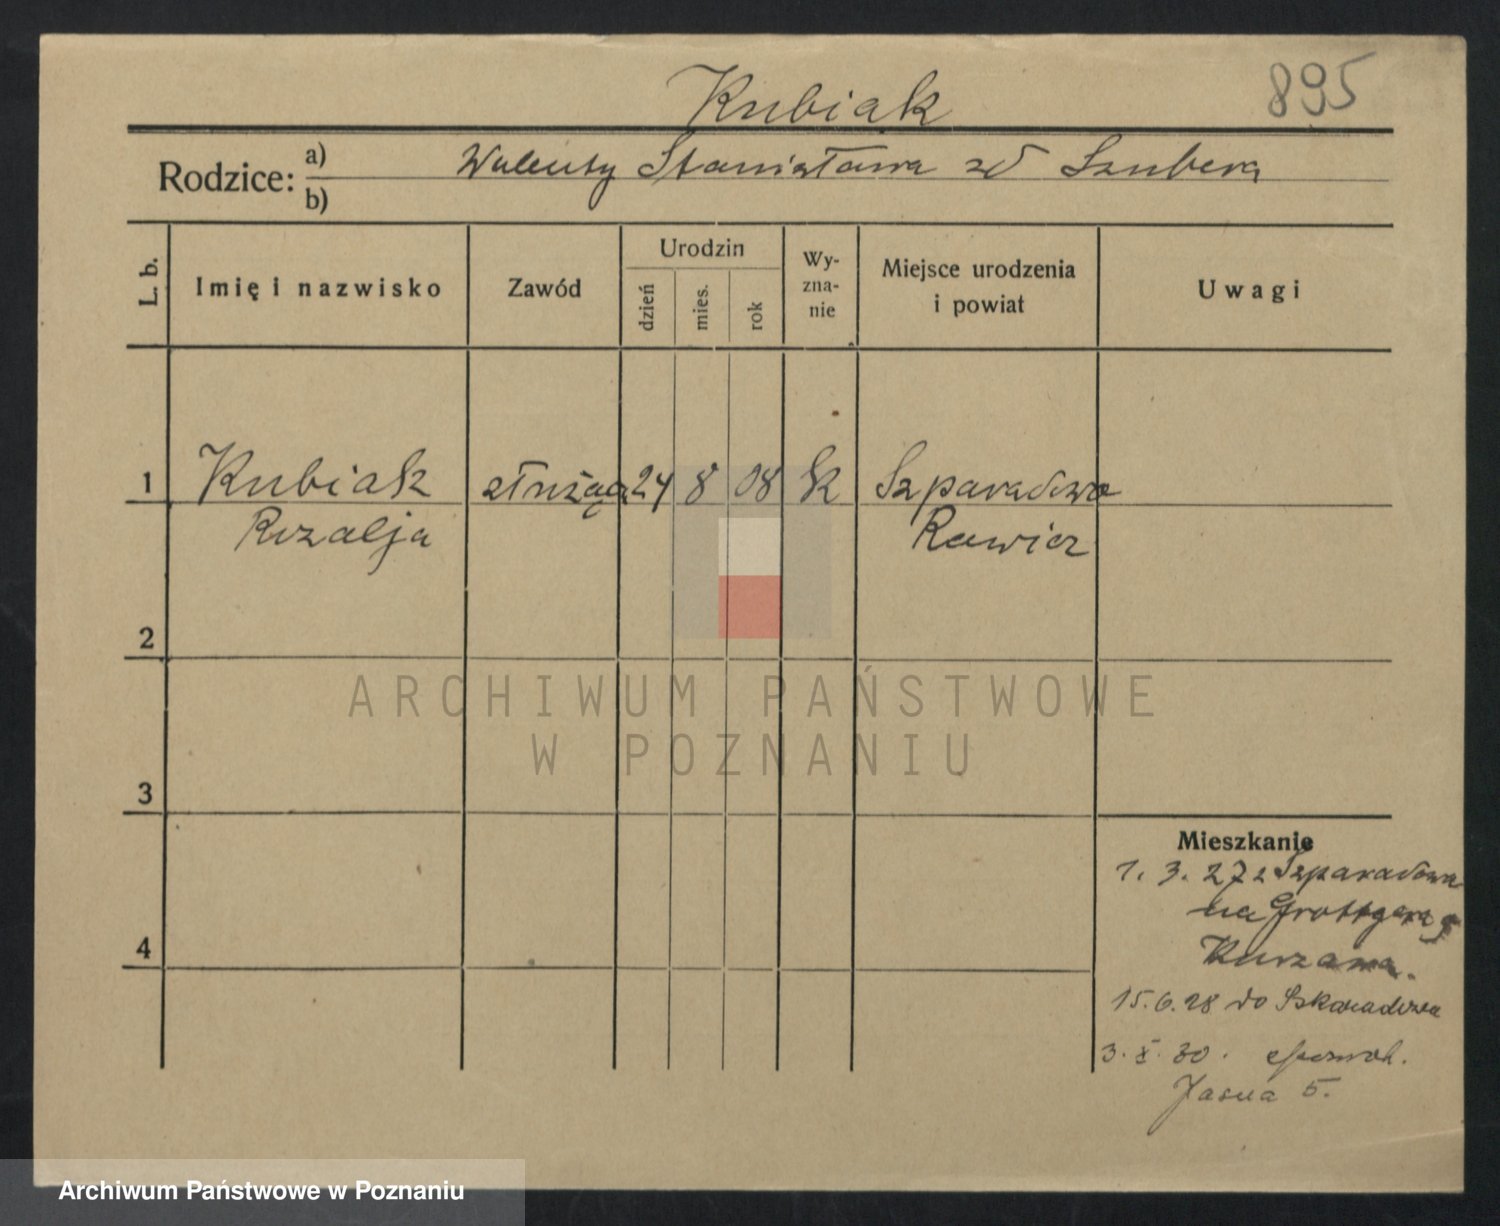 895
Kubiak
Rodzice: a) Walenty Stanisława zd Szubera
b)
L. b.
Imię i nazwisko
Zawód
Urodzin
dzień
mies.
rok
Wy-
zna-
nie
Miejsce urodzenia
i powiat
Uwagi
1 Kubiak służąca 24 8 08 k Szparadowo
Rozalja Rawicz
2
ARCHIWUM PAŃSTWOWE
W POZNANIU
3
Mieszkanie
1. 3. 27 z Szparadowa
na Grottgera
4
15.6.28 do
3. X. 30.
Jasna 5.
Archiwum Państwowe w Poznaniu